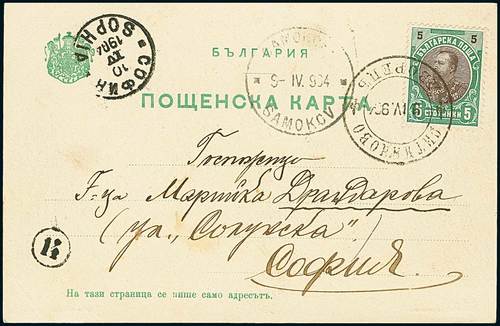 СОФИЯ
10
IV
1904
SOPHIA
БЪЛГАРИЯ
ПОЩЕНСКА КАРТА
9-IV.904
SAMOKOV
5 5
БЪЛГАРСКА ПОЩА
СТОТИНКИ 5
Госпожица
Г-ца Марийка Драндарова
(ул. „Солунска“)
София
На тази страница се пише само адресътъ.